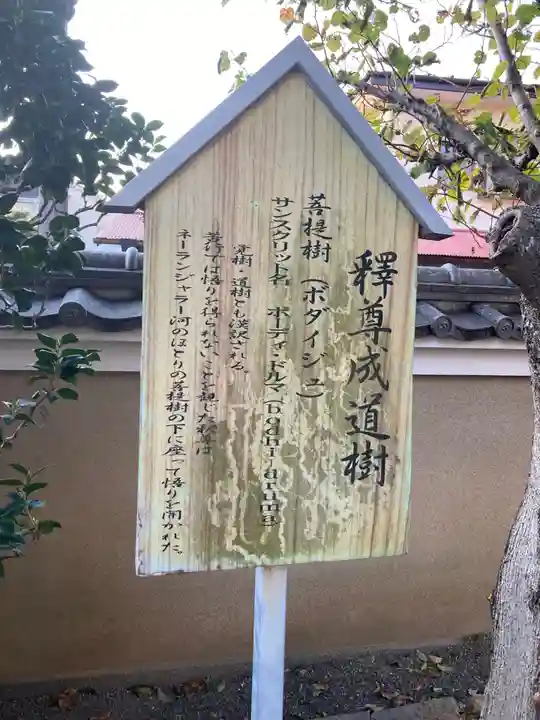 釋尊成道樹
菩提樹（ボダイジュ）
サンスクリット名 ボーディ・ドルマ（bodhi druma）
道樹とも漢訳される。
苦行では悟りを得られないことを
ネーランジャラー河のほとりの菩提樹の下に座って悟りを開かれた。